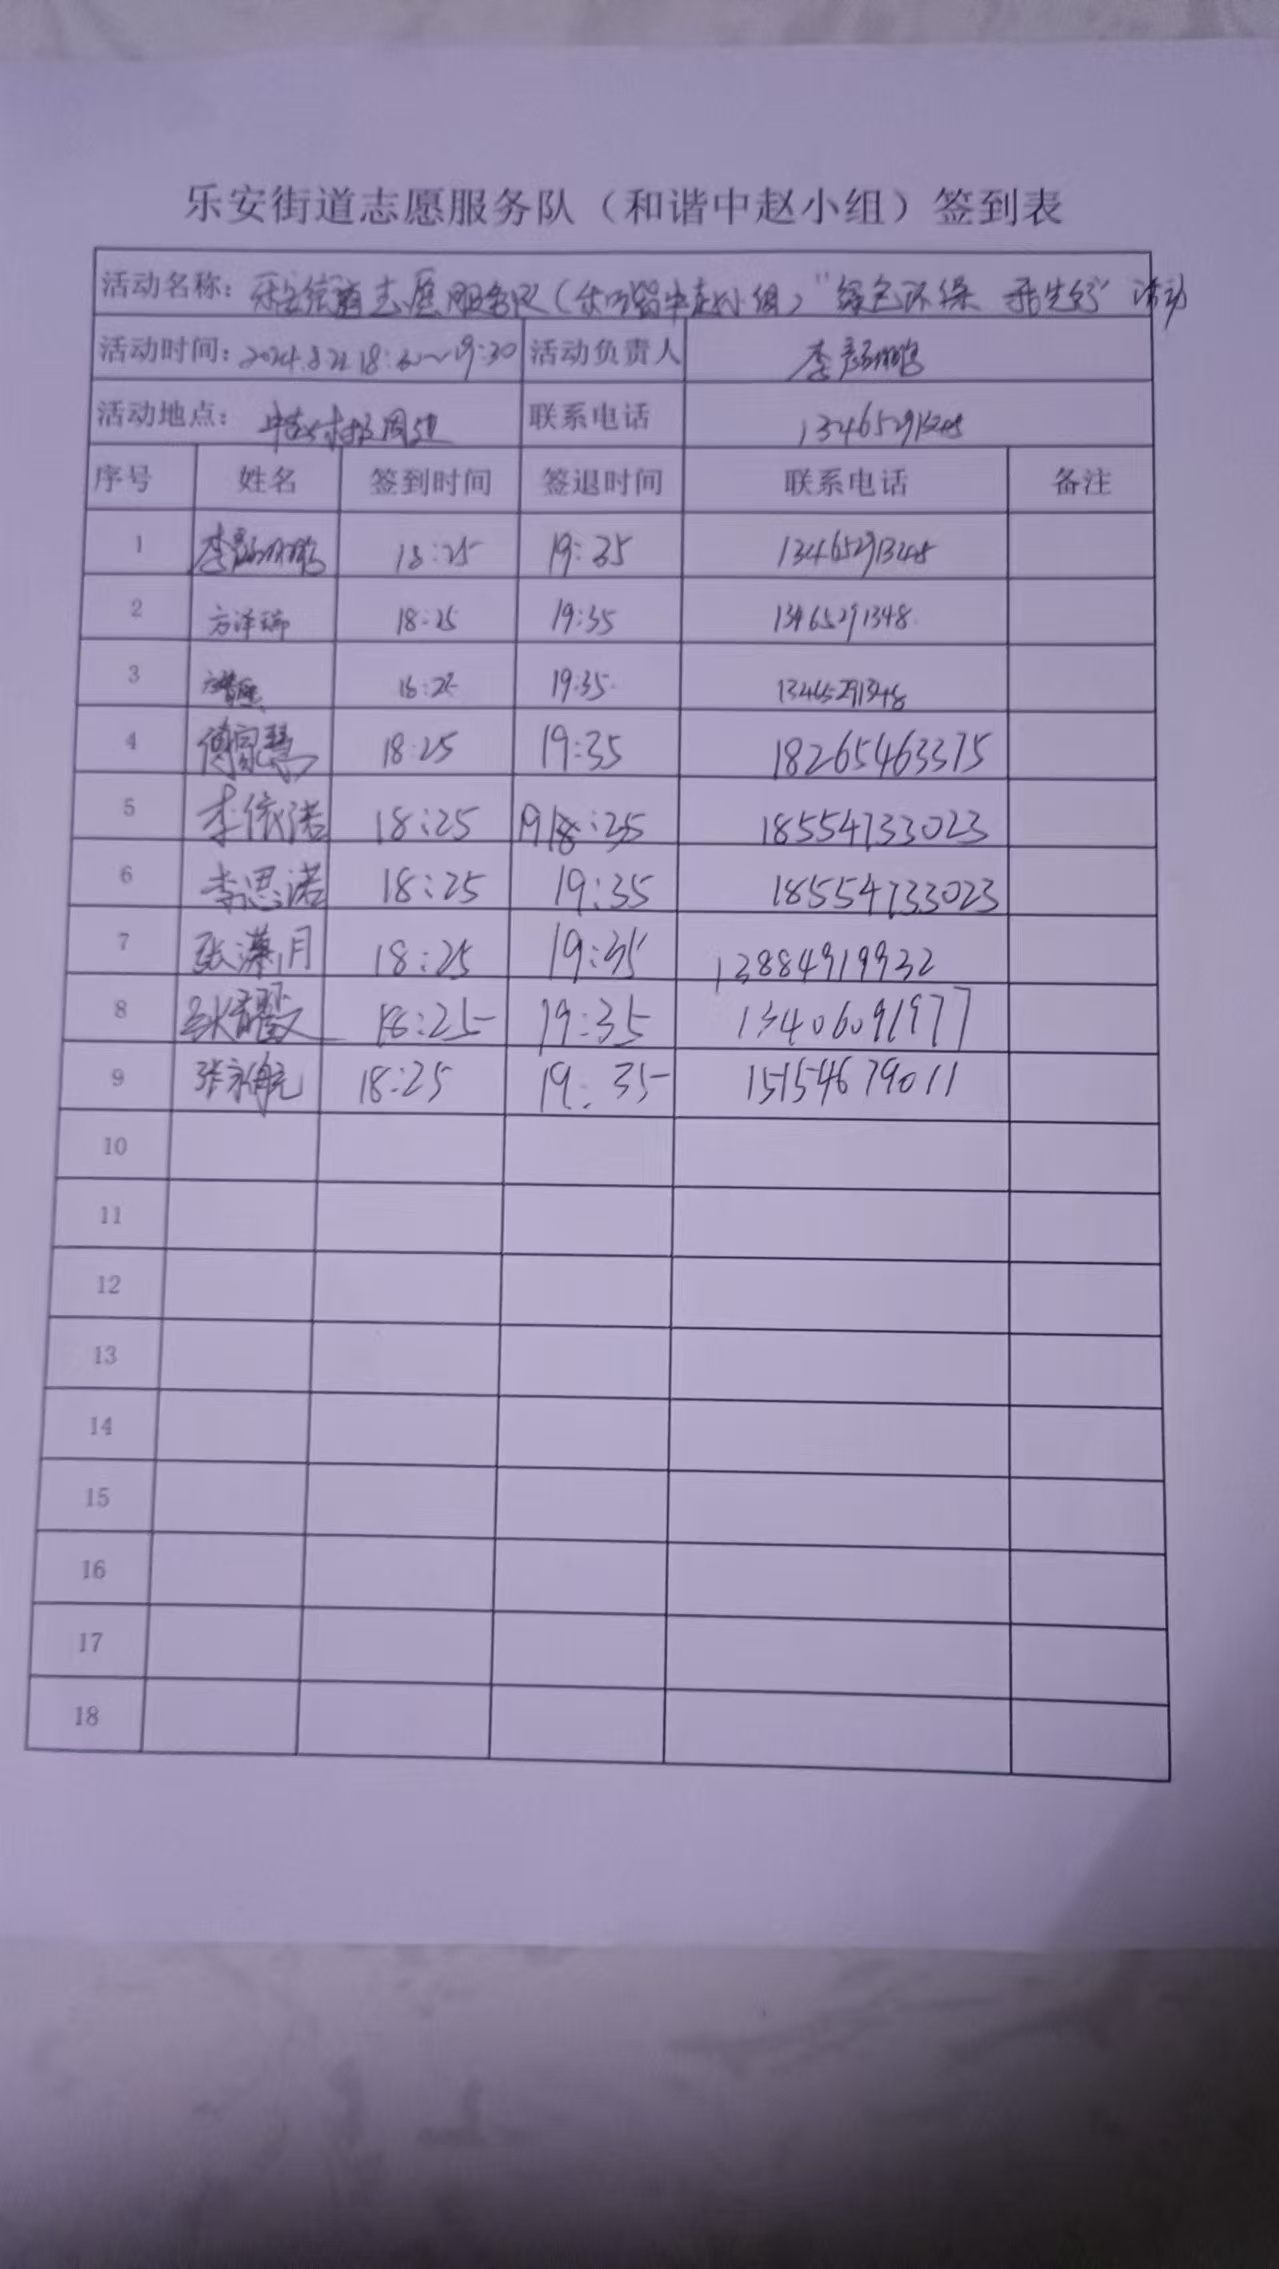 乐安街道志愿服务队（和谐中赵小组）签到表
活动名称：乐安街道志愿服务队（和谐中赵小组）"绿色环保 我先行"活动
活动时间：2024.8.22 18:30~19:30 活动负责人 李
活动地点：中赵村及周边 联系电话 13465291348
序号 姓名 签到时间 签退时间 联系电话 备注
1 李 18:25 19:35 13465291348
2 方泽瑞 18:25 19:35 13465291348
3 18:25 19:35 13465291348
4 傅家慧 18:25 19:35 18265463375
5 李依诺 18:25 19:35 18554733023
6 李思诺 18:25 19:35 18554733023
7 张潇月 18:25 19:35 13884919932
8 18:25 19:35 13406091977
9 张永航 18:25 19:35 15154679011
10
11
12
13
14
15
16
17
18